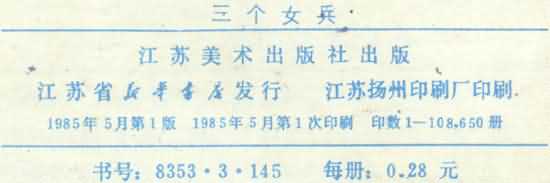 三个女兵
江苏美术出版社出版
江苏省新华书店发行 江苏扬州印刷厂印刷
1985年5月第1版 1985年5月第1次印刷 印数1—108,650册
书号:8353·3·145 每册:0.28元